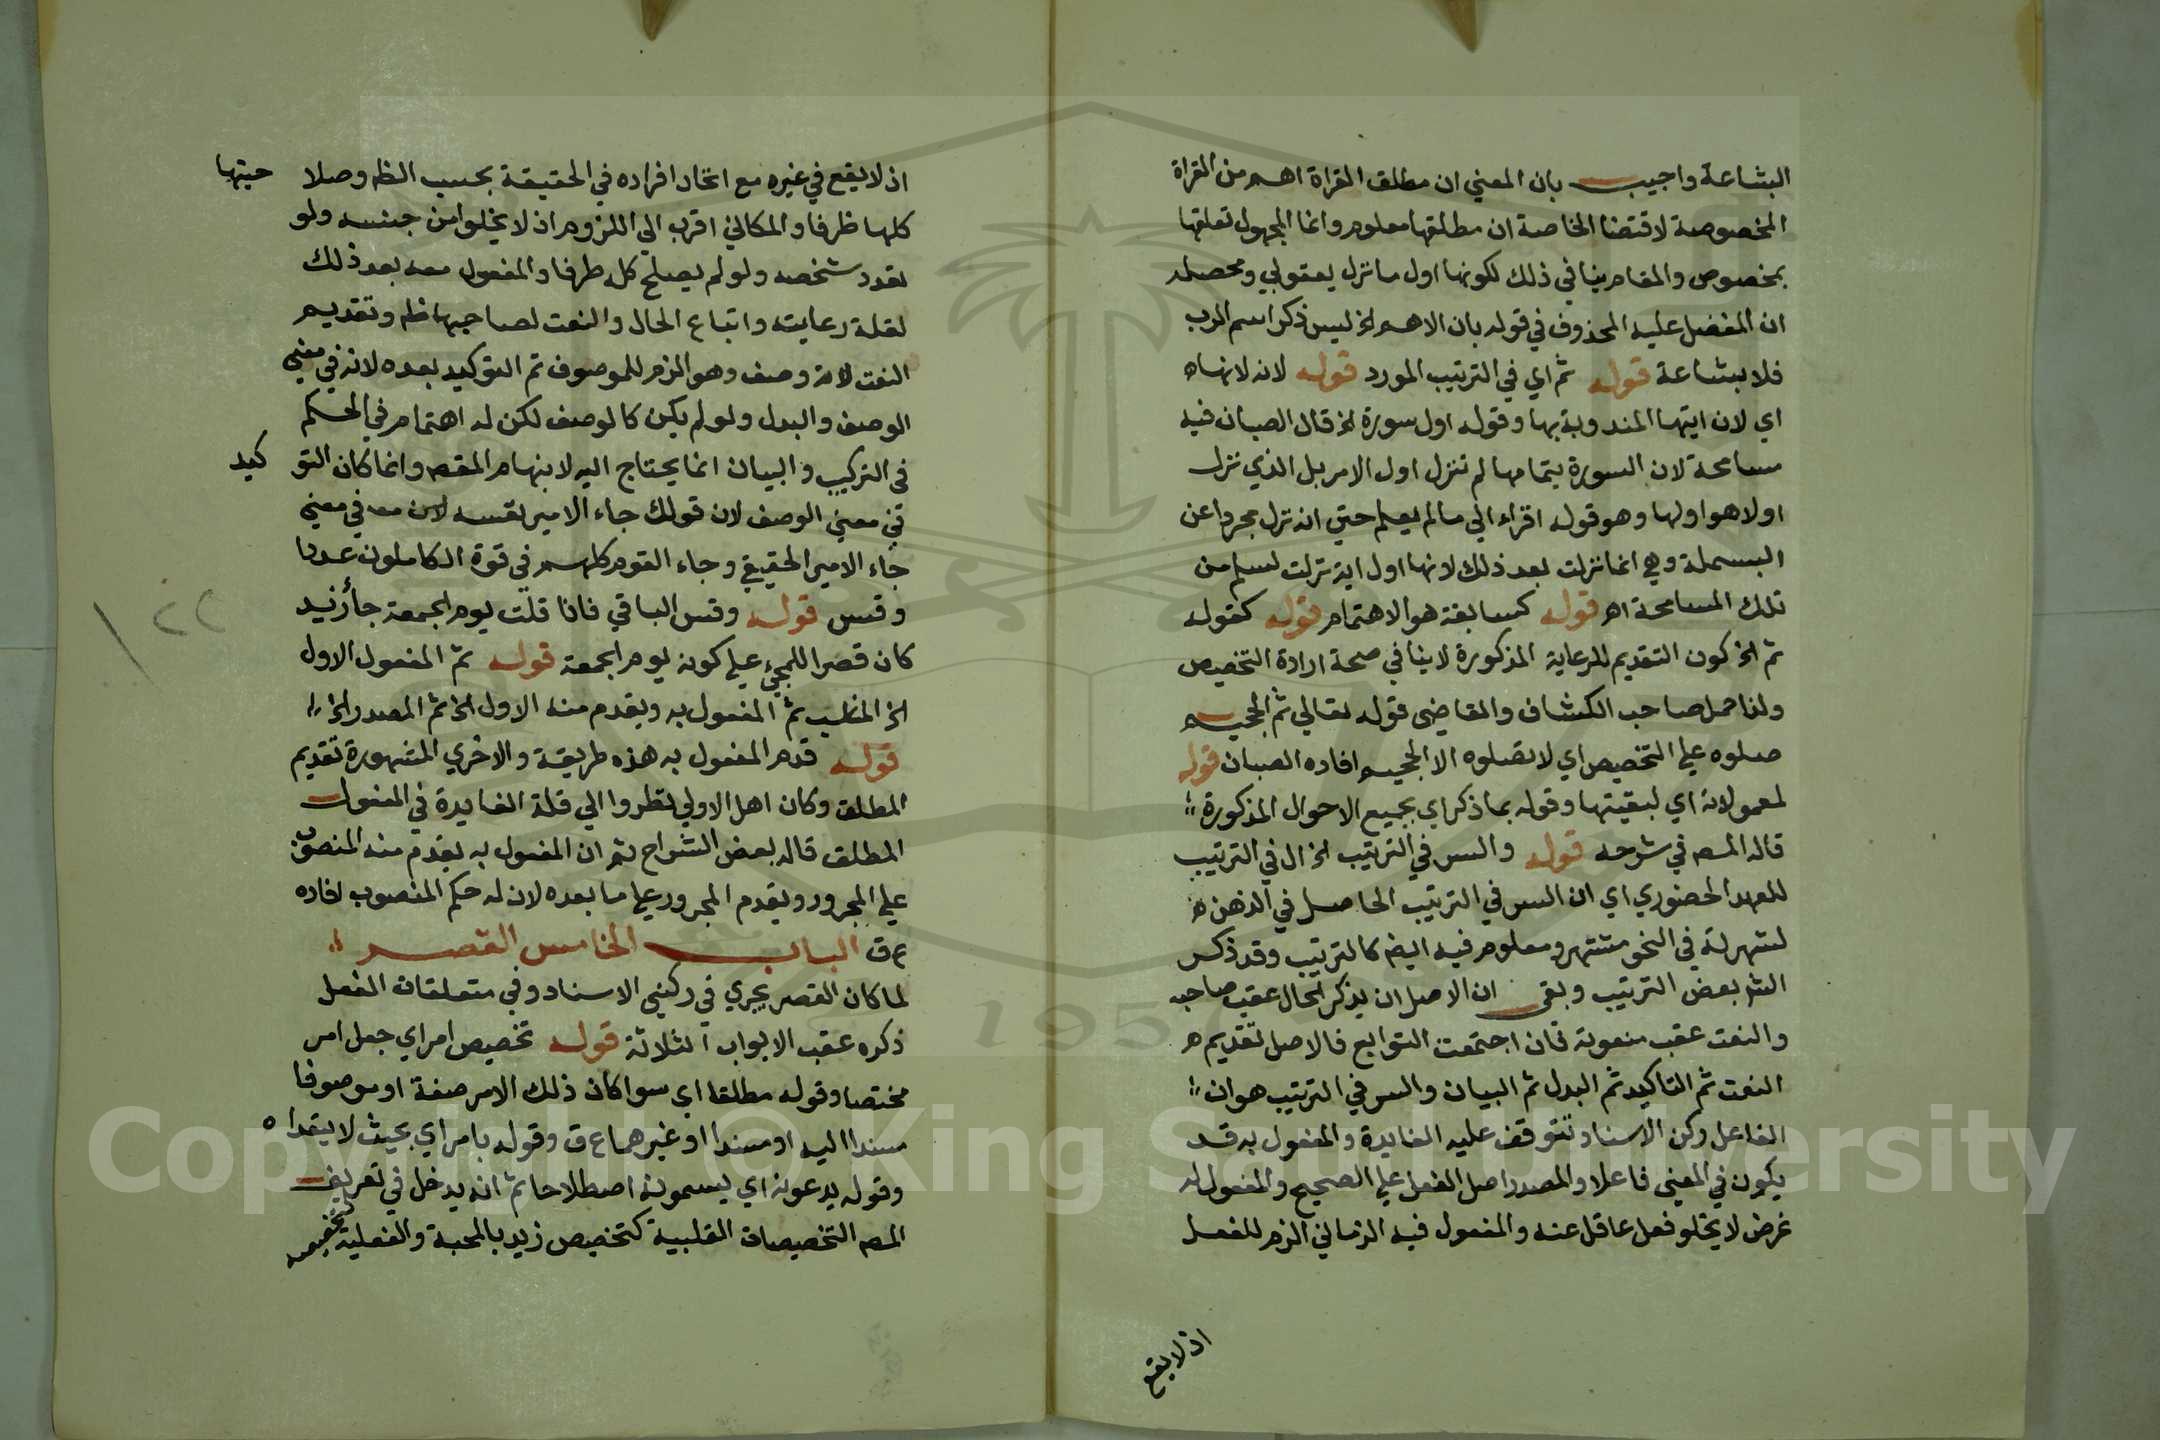 البشاعة واجيب بان المعني ان مطلق القراة اهم من القراة
المخصوصة لاقتضا الخاصة ان مطلقها معلوم وانما المجهول تعلقها
بمخصوص والمقام ينافي ذلك لكونها اول ما نزل يعقوبي ومحصله
ان المفضل عليه المحذوف في قوله بان الاهم الخ ليس ذكر اسم الرب
فلا بشاعة قوله ثم اي في الترتيب المورد قوله لانه لانهاه
اي لان ايتها المندوبة بها وقوله اول سورة الخ قال الصبان فيه
مسامحة لان السورة بتمامها لم تنزل اول الامر بل الذي نزل
اولا هو اولها وهو قوله اقراء الي ما لم يعلم حتي انه نزل مجردا عن
البسملة وهي انما نزلت بعد ذلك لانها اول اية نزلت لسلم من
تلك المسامحة اهـ قوله كسابقة هو الاهتمام قوله كقوله
ثم الخ كون التقديم للرعاية المذكورة لا ينافي صحة ارادة التخصيص
ولذا حمل صاحب الكشاف والقاضي قوله تعالي ثم الجحيم
صلوه علي التخصيص اي لا تصلوه الا الجحيم افاده الصبان قوله
لمعمولاته اي لبقيتها وقوله بما ذكر اي بجميع الاحوال المذكورة
قاله المصـ في شرحه قوله والسر في الترتيب الخ ال في الترتيب
للعهد الحضوري اي ان السر في الترتيب الحاصل في الذهن
لشهرته في النحو مشتهر ومعلوم فيه ايضـ كالترتيب وقد ذكر
الشـ بعض الترتيب وبقي ان الاصل ان يذكر الحال عقب صاحبه
والنعت عقب منعوته فان اجتمعت التوابع فالاصل تقديم
النعت ثم التاكيد ثم البدل ثم البيان والسر في الترتيب هو ان
الفاعل ركن الاسناد تتوقف عليه الفايدة والمفعول به قد
يكون في المعني فاعلا والمصدر اصل الفعل علي الصحيح والمفعول له
غرض لا يخلو فعل عاقل عنه والمفعول فيه الزماني الزم للفعل
اذ لا يقع
اذ لا يقع في غيره مع اتحاد افراده في الحقيقة بحسب الظـ وصلا حيتها
كلها ظرفا والمكاني اقرب الي اللزوم اذ لا يخلو من جنسه ولو
تعدد شخصه ولو لم يصلح كله ظرفا والمفعول معه بعد ذلك
لقلة رعايته واتباع الحال والنعت لصاحبها ظـ وتقديم
النعت لانه وصف وهو الزم للموصوف ثم التوكيد بعده لانه في معني
الوصف والبدل ولو لم يكن كالوصف لكن له اهتمام في الحكم
في التركيب والبيان انما يحتاج اليه لابهام المقصـ وانما كان التو كيد
في معني الوصف لان قولك جاء الامير نفسه في معني
جاء الامير الحقيقي وجاء القوم كلهم في قوة الكاملون عددا
وقس قوله وقس الباقي فاذا قلت يوم الجمعة جأ زيد
كان قصرا للمجي علي كونه يوم الجمعة قوله ثم المفعول الاول
الخ المناسب ثم المفعول به ويقدم منه الاول الخ ثم المصدر الخ
قوله قدم المفعول به هذه طريقة والاخري المشهورة تقديم
المطلق وكان اهل الاولي نظروا الي قلة الفايدة في المفعول
المطلق قاله بعض الشراح ثم ان المفعول به يقدم منه المنصوب
علي المجرور ويقدم المجرور علي ما بعده لان له حكم المنصوب افاده
ع ق الباب الخامس القصر
لما كان القصر يجري في ركني الاسناد وفي متعلقات الفعل
ذكره عقب الابواب الثلاثة قوله تخصيص امر اي جعل امر
مختصا وقوله مطلقا اي سوا كان ذلك الامر صفة او موصوفا
مسندا اليه او مسندا او غيرهما ع ق وقوله بامر اي بحيث لا يتعداه
وقوله يدعونه اي يسمونه اصطلاحا ثم انه يدخل في تعريف
المصـ التخصيصات القلبية كتخصيص زيد بالمحبة والفعلية
١٢٢
Copyright © King Saud University
1957